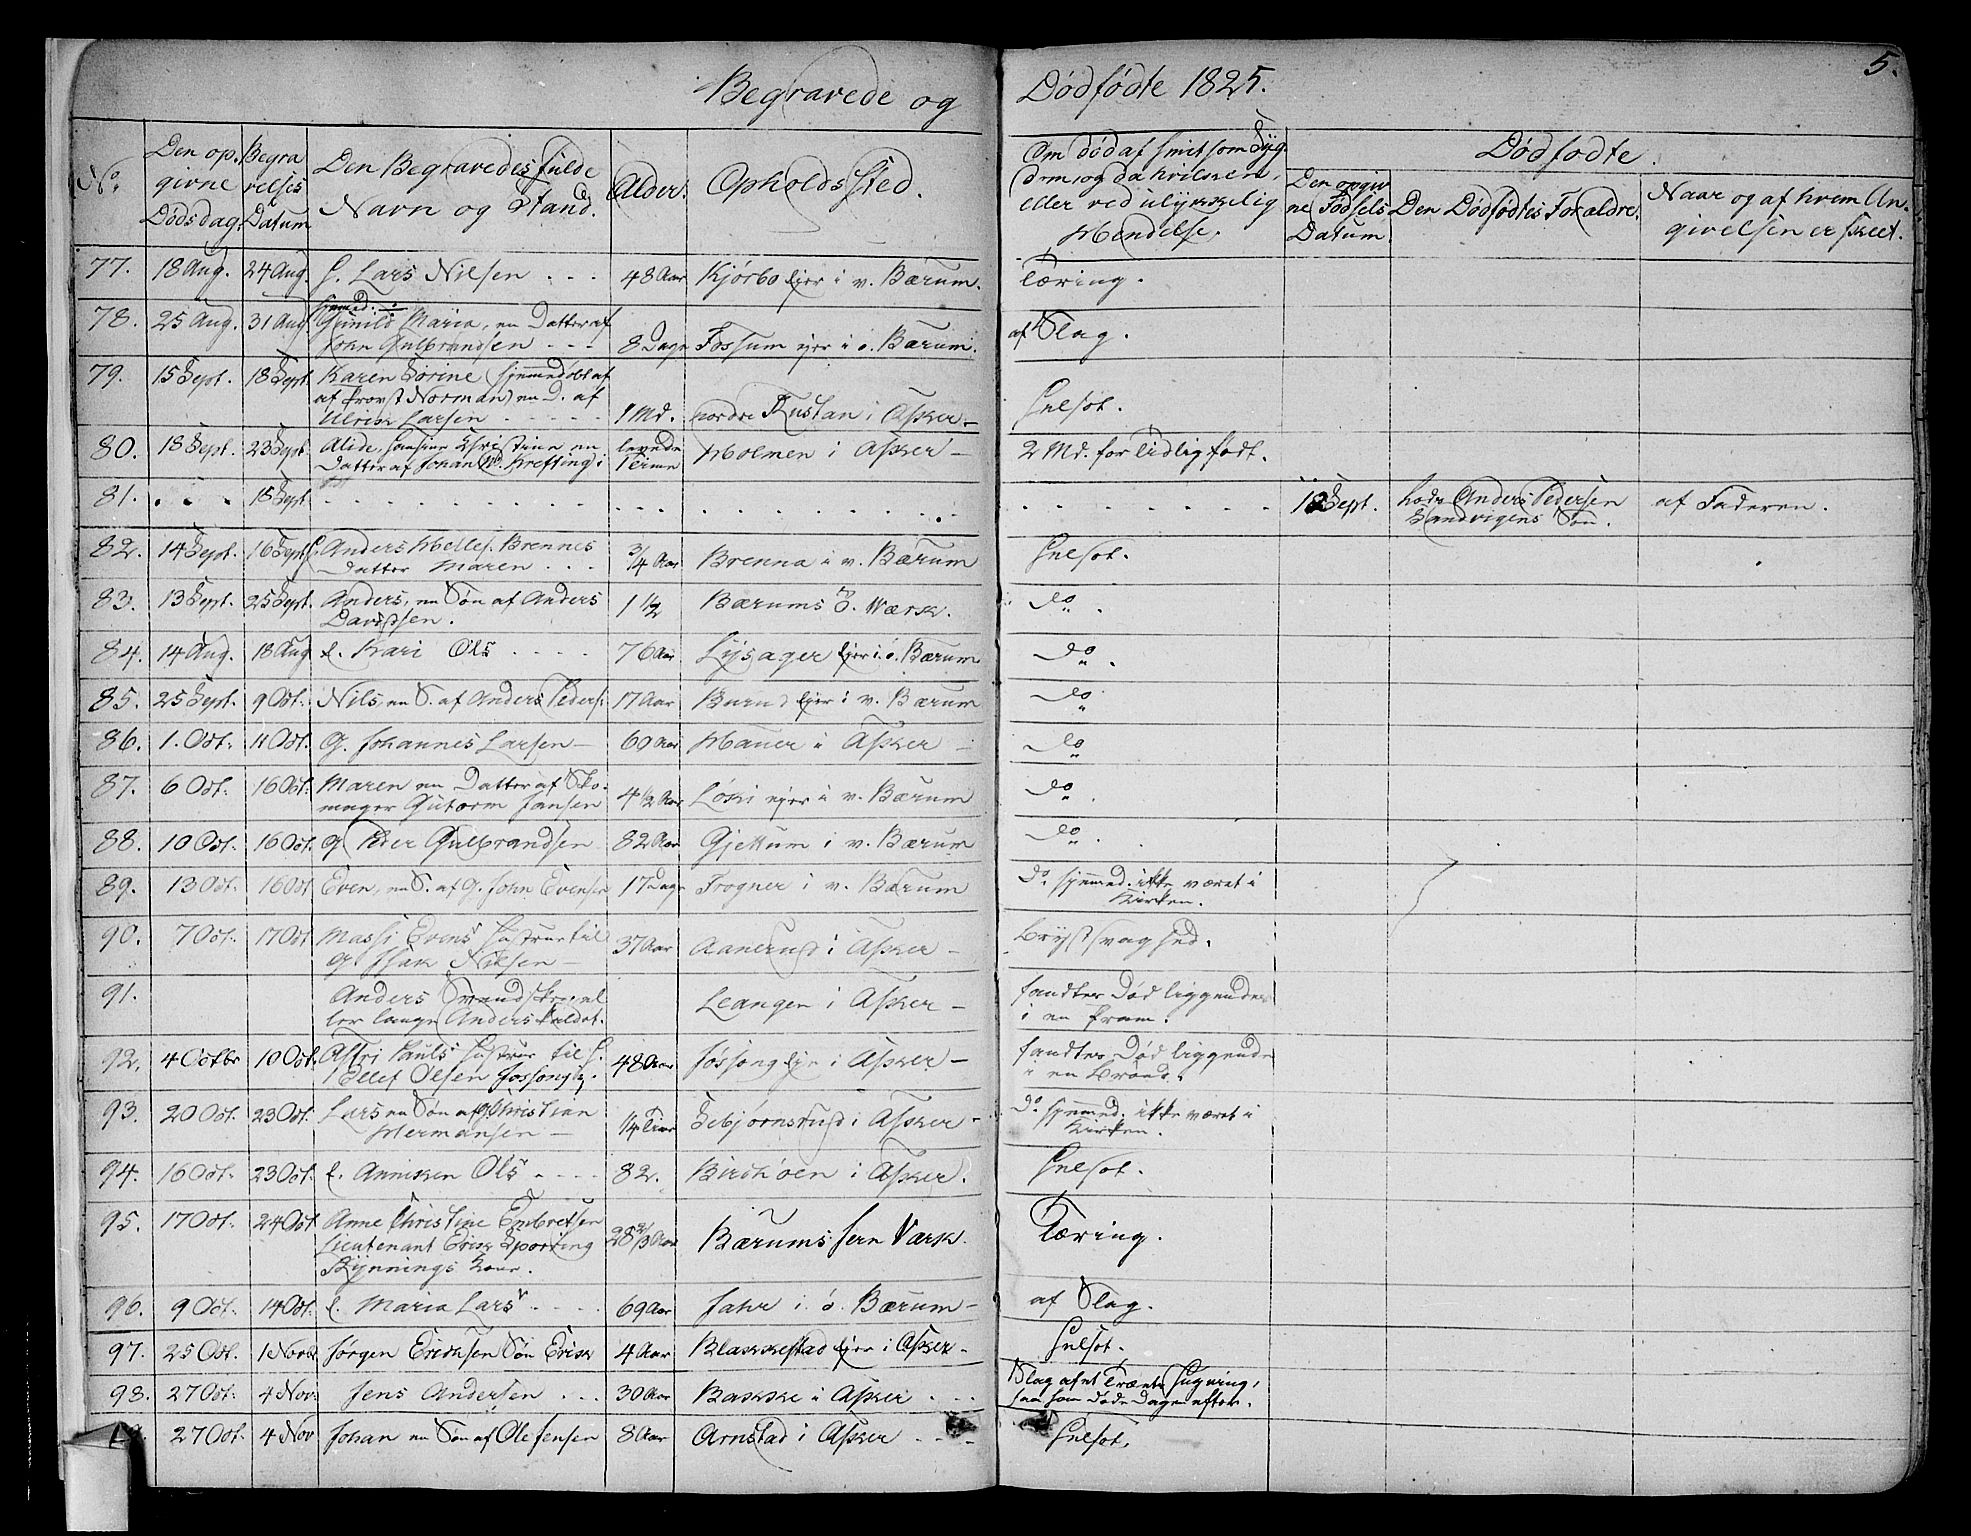 Begravede og Dødfødte 1825.
5.
No.
Den op-
givne
Dødsdag.
Begra
velses
Datum
Den Begravedes fulde
Navn og Stand.
Alder.
Opholdssted.
Om død af smitsom Syg-
dom, og da hvilken,
eller ved ulykkelig
Hændelse.
Dødfødte.
Den opgiv
ne Fødsels
Datum.
Den Dødfødtes Forældre.
Naar og af hvem An-
givelsen er skeet.
77. 18 Aug. 24 Aug. G. Lars Nilsen . . . 48 Aar Kjørbo Ejer i v. Bærum. Tæring.
78. 25 Aug. 31 Aug hjemmed.
Gunild Maria, en Datter af
John Gulbrandsen . . . 8 Dage Fossum ejer i ø. Bærum. af Slag.
79. 15 Sept. 18 Sept. Karen Sørine (hjemmedøbt af
af Provst Norman) en D. af
Ulrisk Larsen 1 Md. nordre Rustan i Asker – Gulsot.
80. 18 Sept. 23 Sept. Christine en
Datter af Johan Krefting i Holmen i Asker – 2 Md. for tidlig født.
81. . . . 18 Sept. . . . 18 Sept. Anders Pedersen
Sandvigens Søn. af Faderen.
82. 14 Sept. 16 Sept. G. Anders Helles. Brennes
Datter Maren . . . 3/4 Aar Brenna i v. Bærum Gulsot.
83. 13 Sept. 25 Sept. Anders, en Søn af Anders
Davidsen. 1 1/2 Bærums Værk. do.
84. 14 Aug. 18 Aug e. Kari Ols . . . . 76 Aar Lysager Ejer i ø. Bærum do.
85. 25 Sept. 9 Oct. Nils, en S. af Anders Peders. 17 Aar Burud Ejer i v. Bærum do
86. 1. Oct. 11 Oct. G. Johannes Larsen – 60 Aar Hauer i Asker – do
87. 6 Oct. 16 Oct. Maren en Datter af Sko-
mager Gutorm Jansen 4 1/2 Aar Løki ejer i v. Bærum do.
88. 10 Oct. 16 Oct. G Peder Gulbrandsen 82 Aar Gjettum i v. Bærum do.
89. 13 Oct. 16 Oct Even, en S. af G. John Evensen 17 Dage Frogner i v. Bærum do. hjemmed. ikke været i
Kirken.
90. 7 Oct. 17 Oct Massi Evens Hustrue til
G Isak Nilsen – 37 Aar Aanerud i Asker – Brystsvaghed.
91. Anders
ler lange Anders kaldet. Leangen i Asker – fandtes død liggende
i en Pram.
92. 4 Octbr 10 Oct. Astri Pauls Hustrue til G.
Ellef Olsen 48 Aar i Asker – fandtes død liggende
i en Brønd.
93. 20 Oct. 23 Oct. Lars en Søn af G. Christian
Hermansen – 1/4 Time i Asker – do. hjemmed. ikke været i
Kirken.
94. 16 Oct. 23 Oct. e. Annisken Ols . . . . 82. i Asker. Gulsot.
95. 17 Oct. 24 Oct Anne Christine Embretsen
Lieutenant Erisk Sporring
Rynnings Kone. 28 2/3 Aar Bærums Jern Værk. Tæring.
96. 9 Oct. 14 Oct. e. Maria Lars . . . . 69 Aar Jahr i ø. Bærum – af Slag.
97. 25 Oct. 1 Novbr Jørgen Erisksen Søn Erisk 4 Aar Blaskkestad Ejer i Asker – Gulsot.
98. 27 Oct. 4 Nov. Jens Andersen . . . 30 Aar Baskke i Asker . . . Slag af et Træ
saa han døde Dagen efter.
27 Oct. 4 Nov Johan en Søn af Ole Jensen 8 Aar Arnstad i Asker . . . Gulsot.